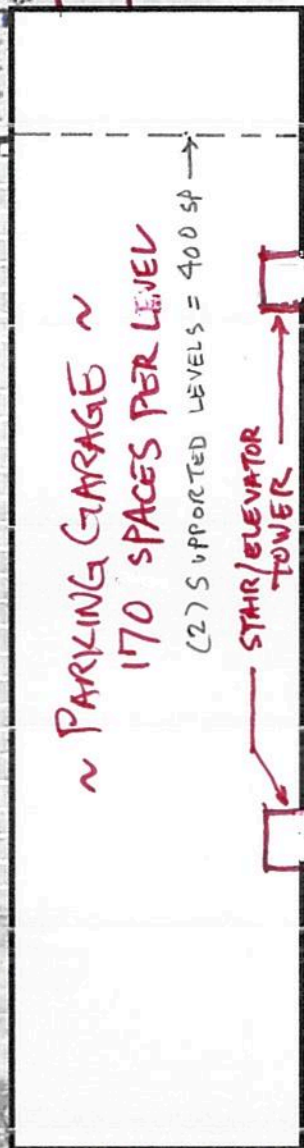 ~ PARKING GARAGE ~
170 SPACES PER LEVEL
(2) SUPPORTED LEVELS = 400 SP
STAIR/ELEVATOR
TOWER